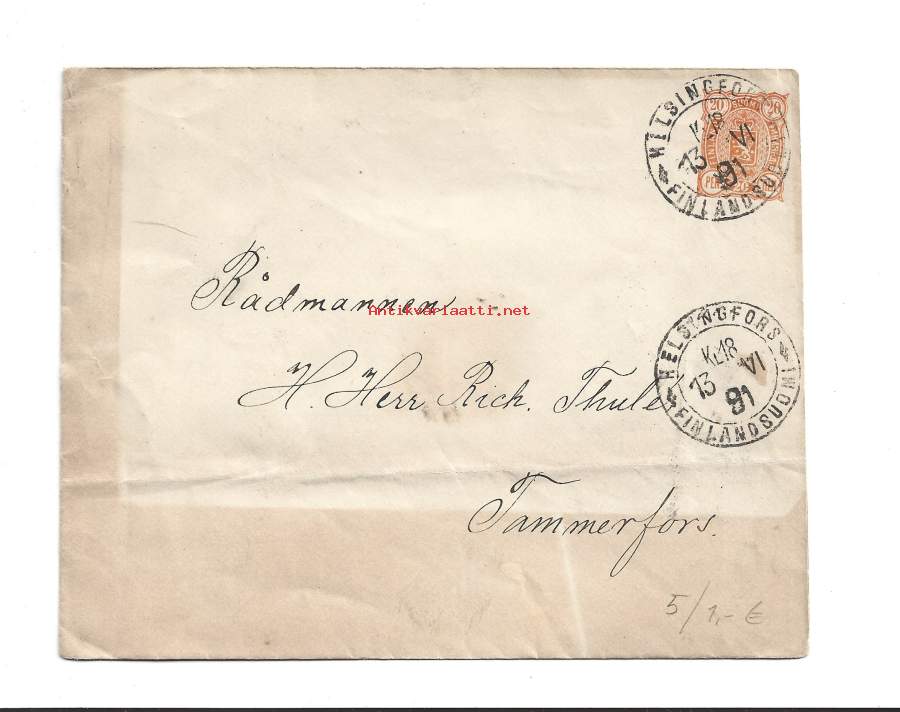 HELSINGFORS
20 20
KL.18
13 VI
91
FINLANDSUOMI
Rådmannen
Antikvariaatti.net
HELSINGFORS
KL.18
13 VI
91
FINLANDSUOMI
H. Herr Rich. Thulé
Tammerfors.
5/1,- €